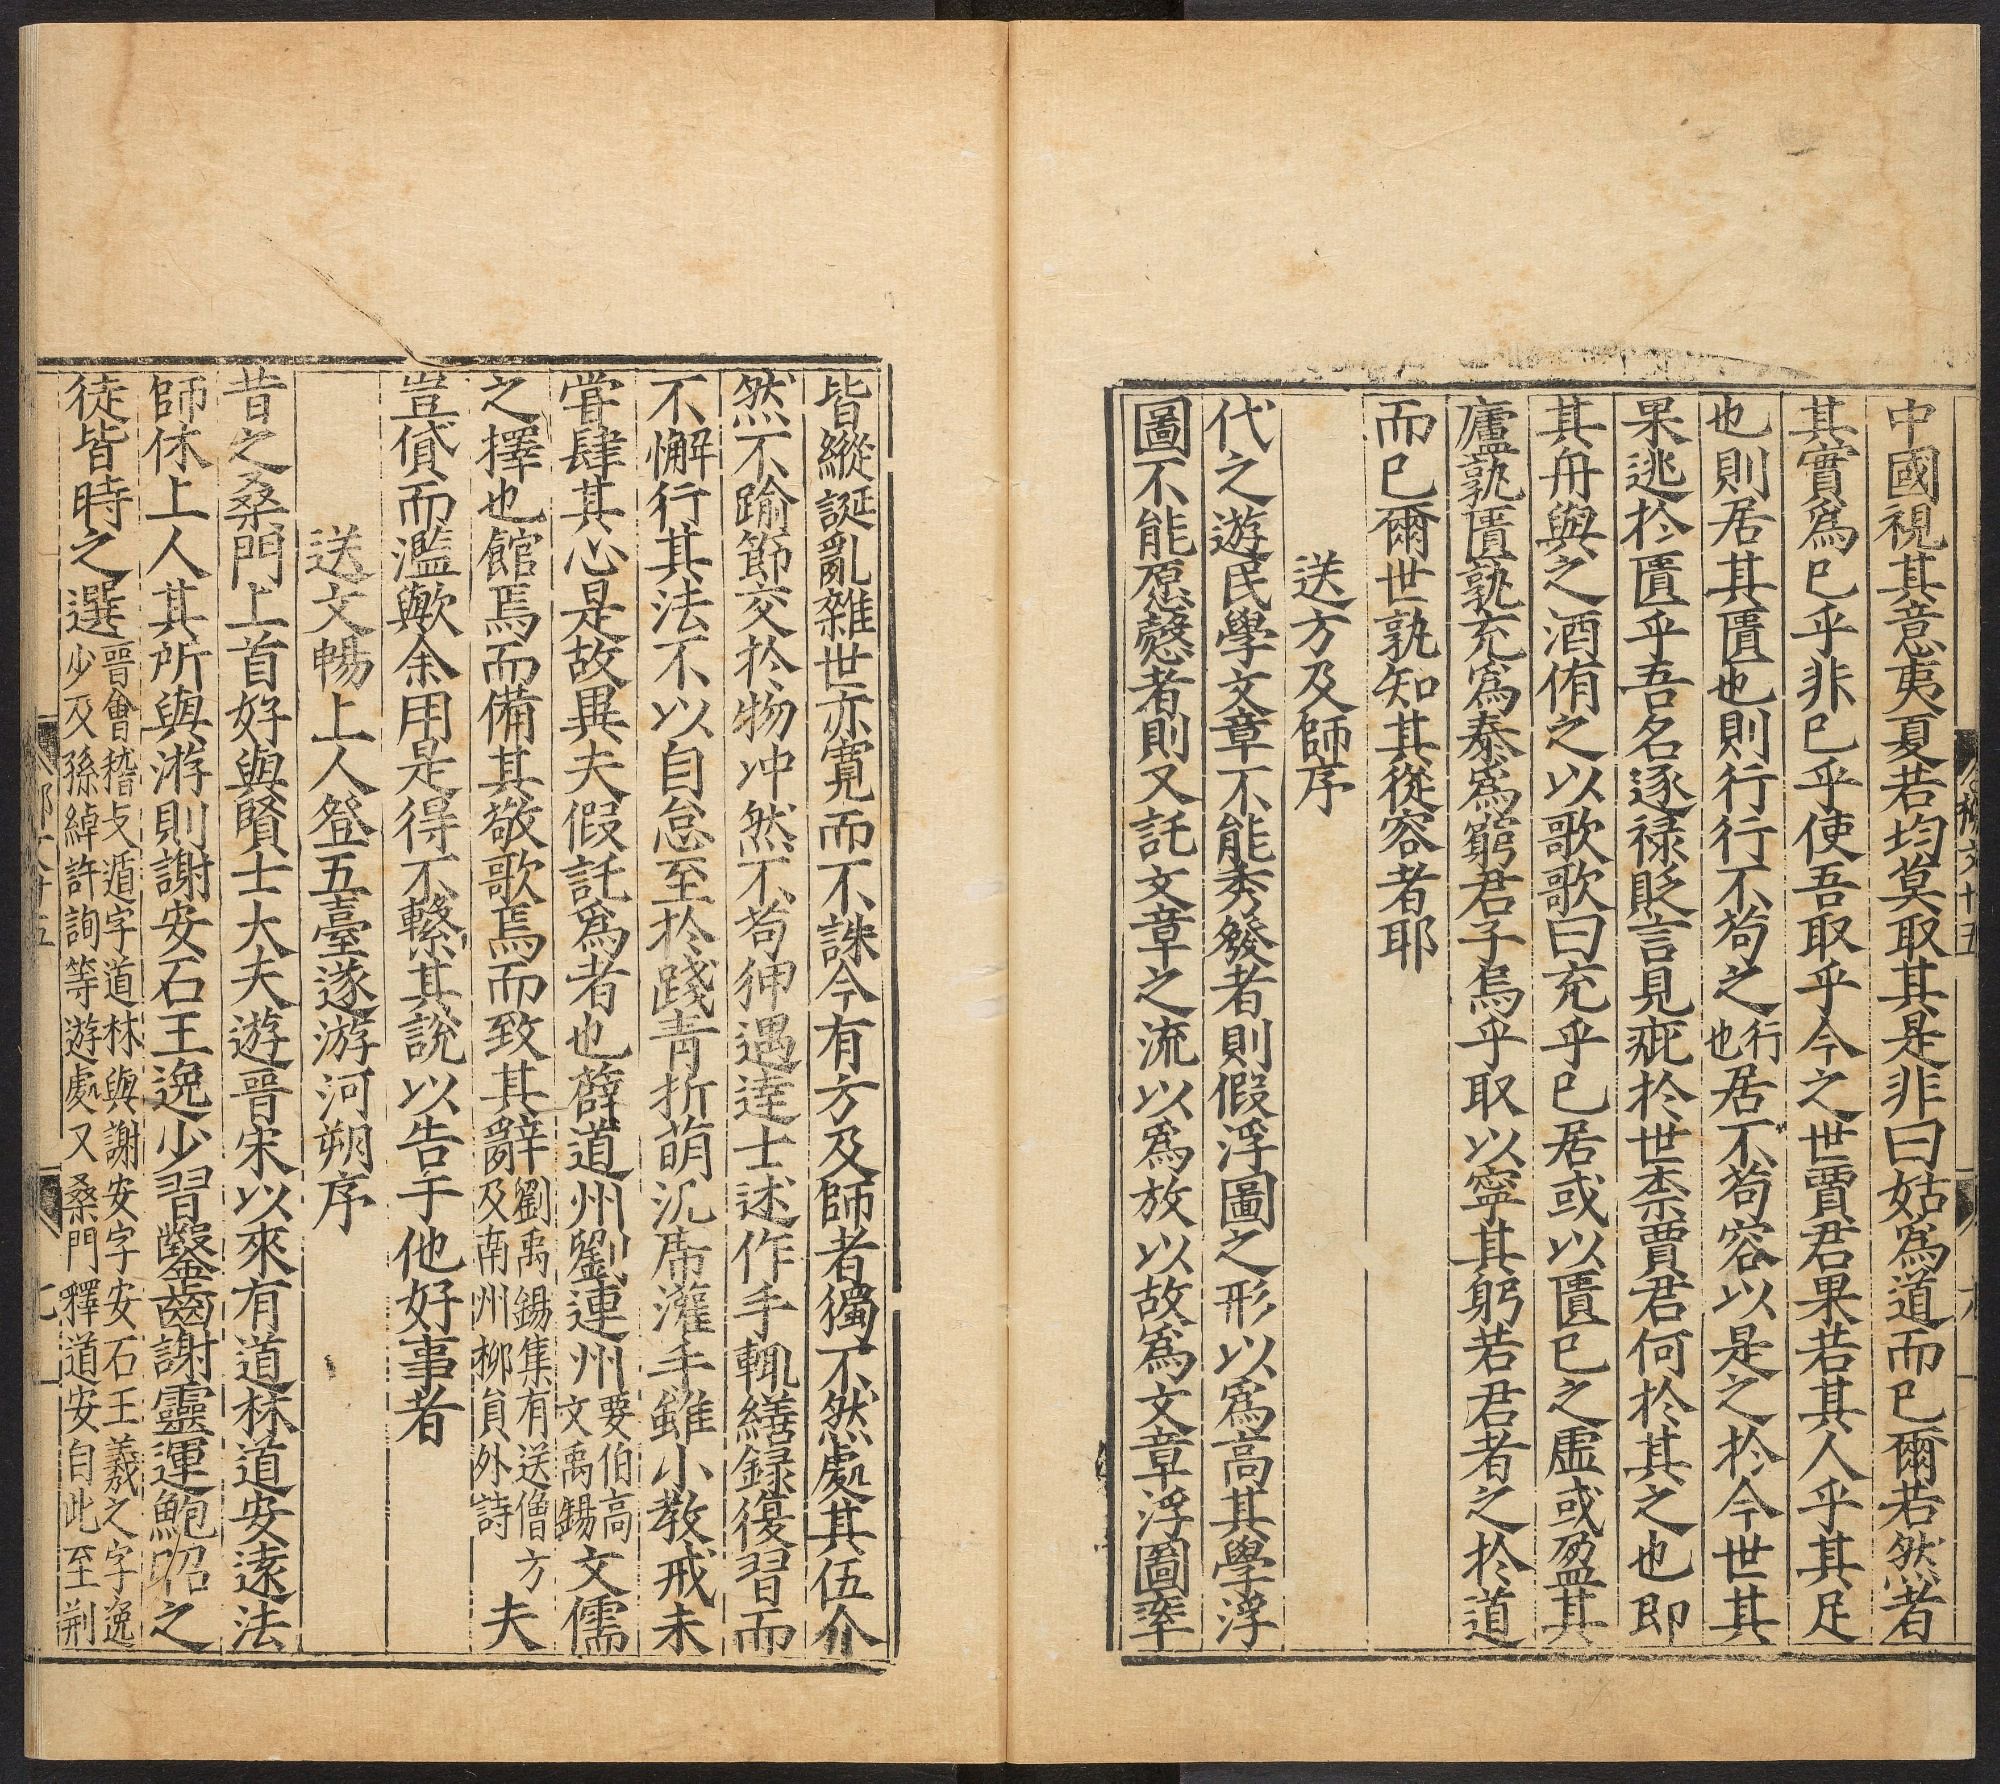 中國視其意夷夏若均莫取其是非曰姑爲道而已爾若然者
其實爲已乎非已乎使吾取乎今之世賈君果若其人乎其足
也則居其匱也則行行不苟之行也居不苟容以是之於今世其
果逃於匱乎吾名逐祿貶言見疵於世柰賈君何於其之也即
其舟與之酒侑之以歌歌曰充乎已居或以匱已之虛或盈其
廬孰匱孰充爲泰爲窮君子烏乎取以寧其躬若君者之於道
而已爾世孰知其從容者耶
送方及師序
代之遊民學文章不能秀發者則假浮圖之形以爲高其學浮
圖不能愿慤者則又託文章之流以爲放以故爲文章浮圖率
皆縱誕亂雜世亦寬而不誅今有方及師者獨不然處其伍介
然不踰節交於物冲然不苟狎遇達士述作手輒繕録復習而
不懈行其法不以自怠至於踐青折萌汎席灌手雖小教戒未
嘗肆其心是故異夫假託爲者也薛道州劉連州要伯高文禹錫文儒
之擇也館焉而備其敬歌焉而致其辭劉禹錫集有送僧方及南州柳員外詩夫
豈貸而濫歟余用是得不繫其說以告于他好事者
送文暢上人登五臺遂游河朔序
昔之桑門上首好與賢士大夫遊晉宋以來有道林道安遠法
師休上人其所與游則謝安石王逸少習鑿齒謝靈運鮑昭之
徒皆時之選晉會稽支遁字道林與謝安字安石王羲之字逸少及孫綽許詢等遊處又桑門釋道安自北至荆
柳文十五